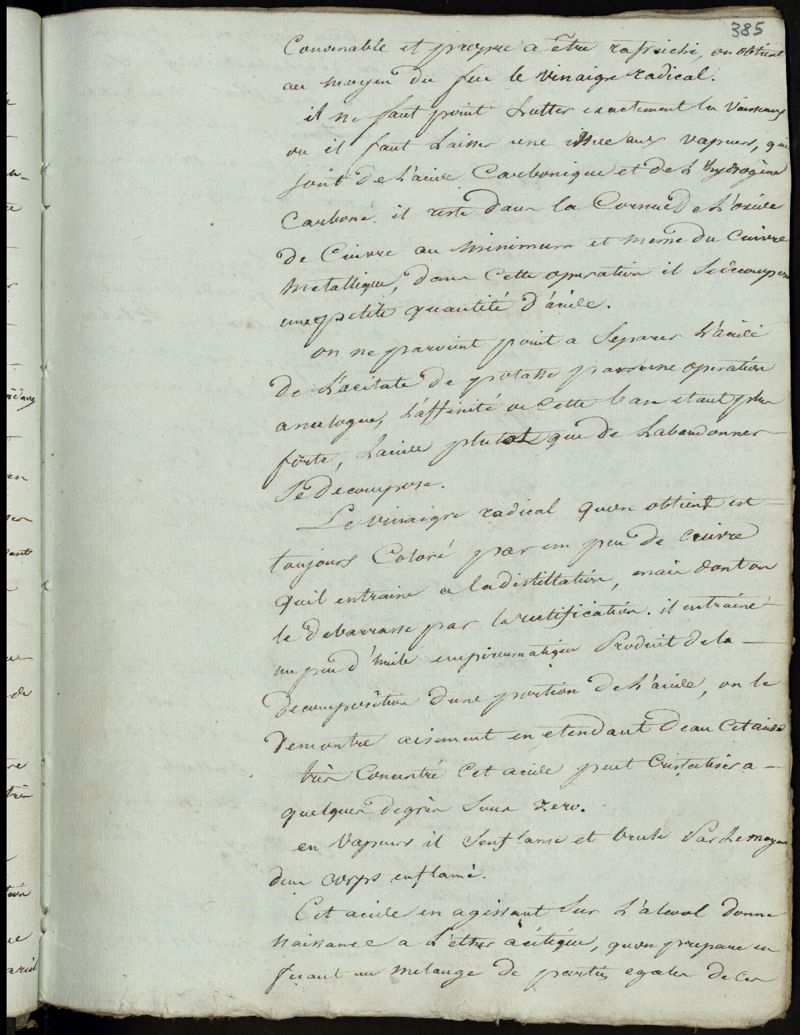 385
Convenable et propre a être rafraichi, on obtient
au moyen du feu le vinaigre radical.
il ne faut point Lutter exactement les Vaisseaux
ou il faut Laisser une issue aux vapeurs, qui
sont de L'acide Carbonique et de L'hydrogène
Carboné. il reste dans la Cornue de L'oxide
de Cuivre au minimum et meme du Cuivre
metallique, dans Cette operation il se decompose
une petite quantité d'acide.
on ne parvient point a Separer L'acide
de L'acetate de potasse par une operation
analogue, L'affinité de Cette base etant plus
forte, L'acide plutot que de L'abandonner
se decompose.
Le vinaigre radical qu'on obtient est
toujours Coloré par un peu de cuivre
qu'il entraine a la distillation, mais dont on
le debarrasse par la rectification. il entraine
un peu d'huile empireumatique Produit de la
decomposition d'une portion de L'acide, on le
demontre aisement en etendant d'eau Cet acide
très Concentré Cet acide peut Cristaliser a
quelques degrès sous zero.
en Vapeurs il s'enflame et brule Par Le moyen
d'un corps enflamé.
Cet acide en agissant Sur L'alcool donne
naissance a L'ether acetique, qu'on prepare en
fesant un melange de parties egales de ces